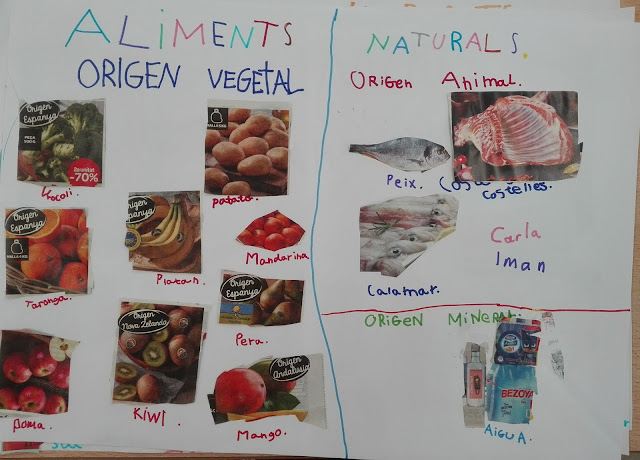 ALiMENTS
NATURALS.
ORIGEN VEGETAL
ORIGEN Animal.
Origen
Espanya
PEZA
500G
Rebaixat
-70%
Brocoli.
MALLA 5KG
patata.
Peix.
Costelles.
Origen
Espanya
MALLA 4KG
Taronga.
Origen
Espanya
Platan.
Mandarina
Calamar.
Carla
Iman
Origen
Espanya
Pera.
ORIGEN MINERAL.
Poma.
Origen
Nova Zelanda
KiWI.
Origen
Andalusia
Mango.
BEZOYA
AIGUA.